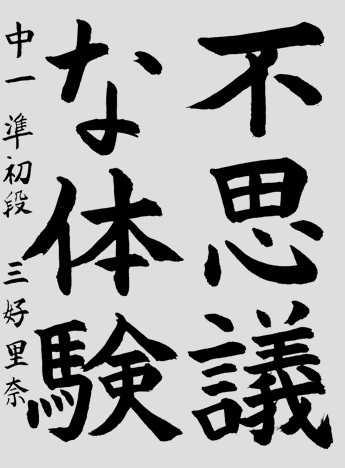 不思議
な体験
中一 準初段 三好里奈